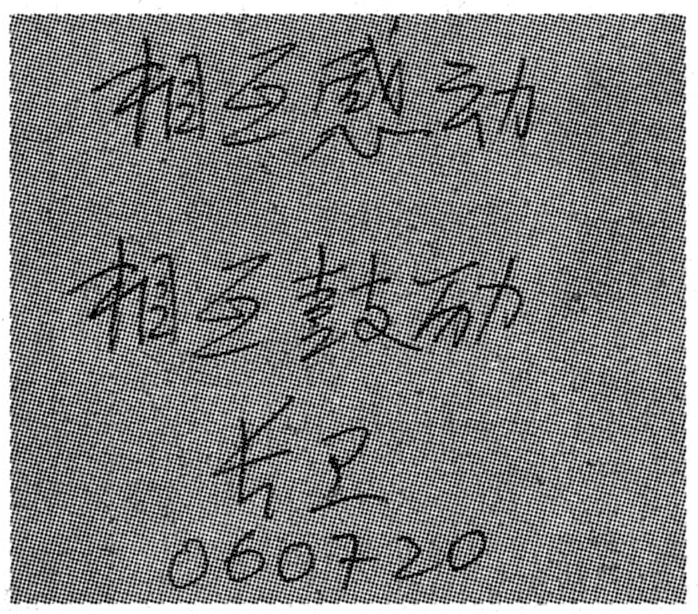 相互感动
相互鼓励
长卫
060720